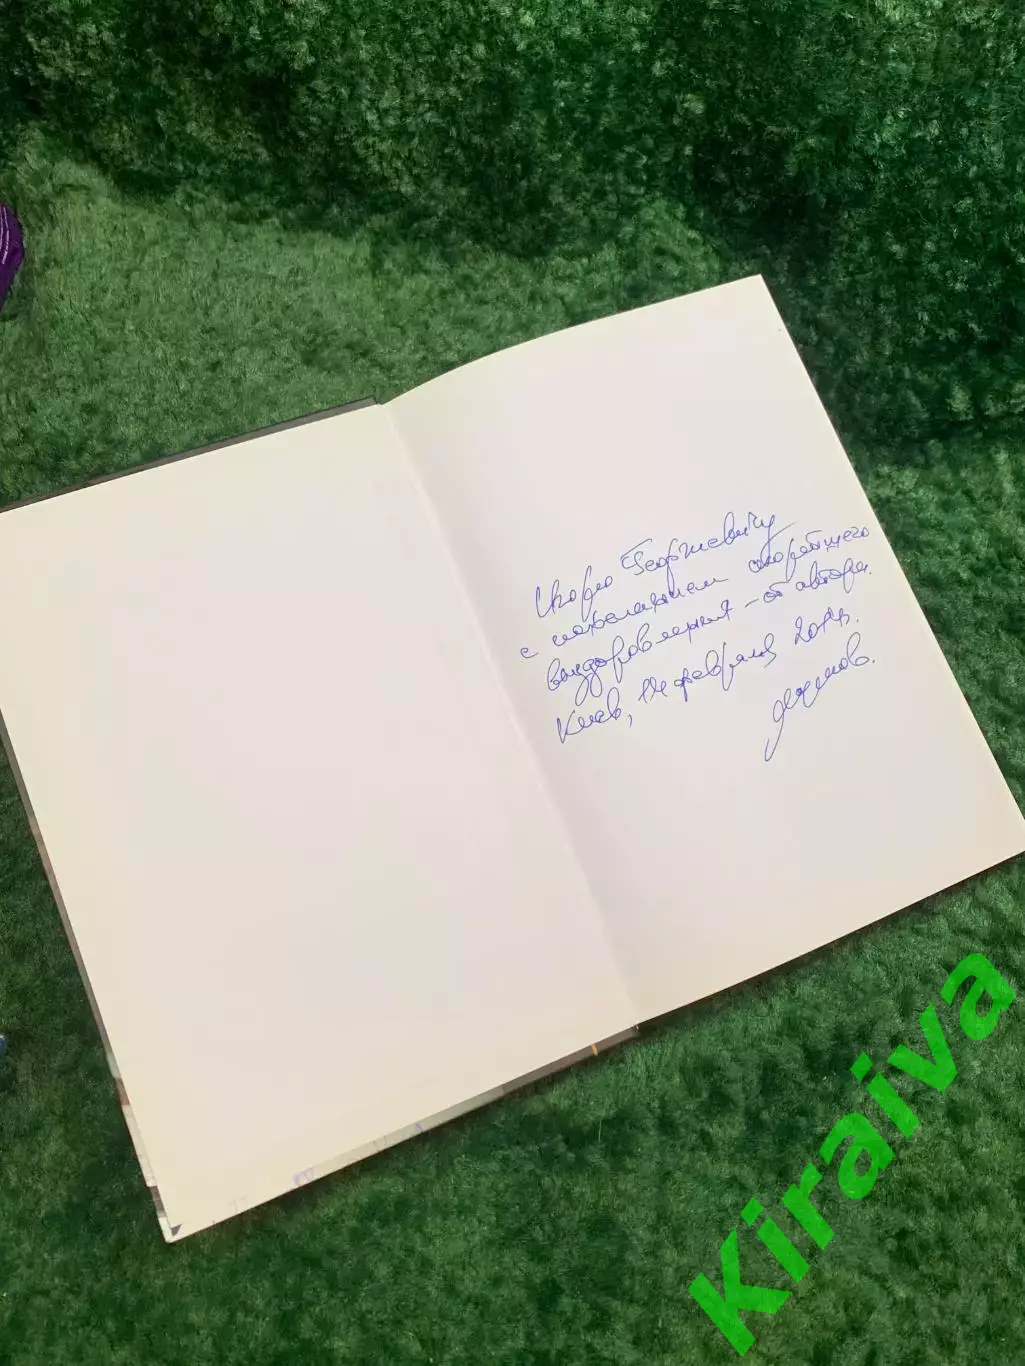 Игорю Георгиевичу
с пожеланием скорейшего
выздоровления – от автора.
Киев, 14 февраля 2014г.
Kiraiva